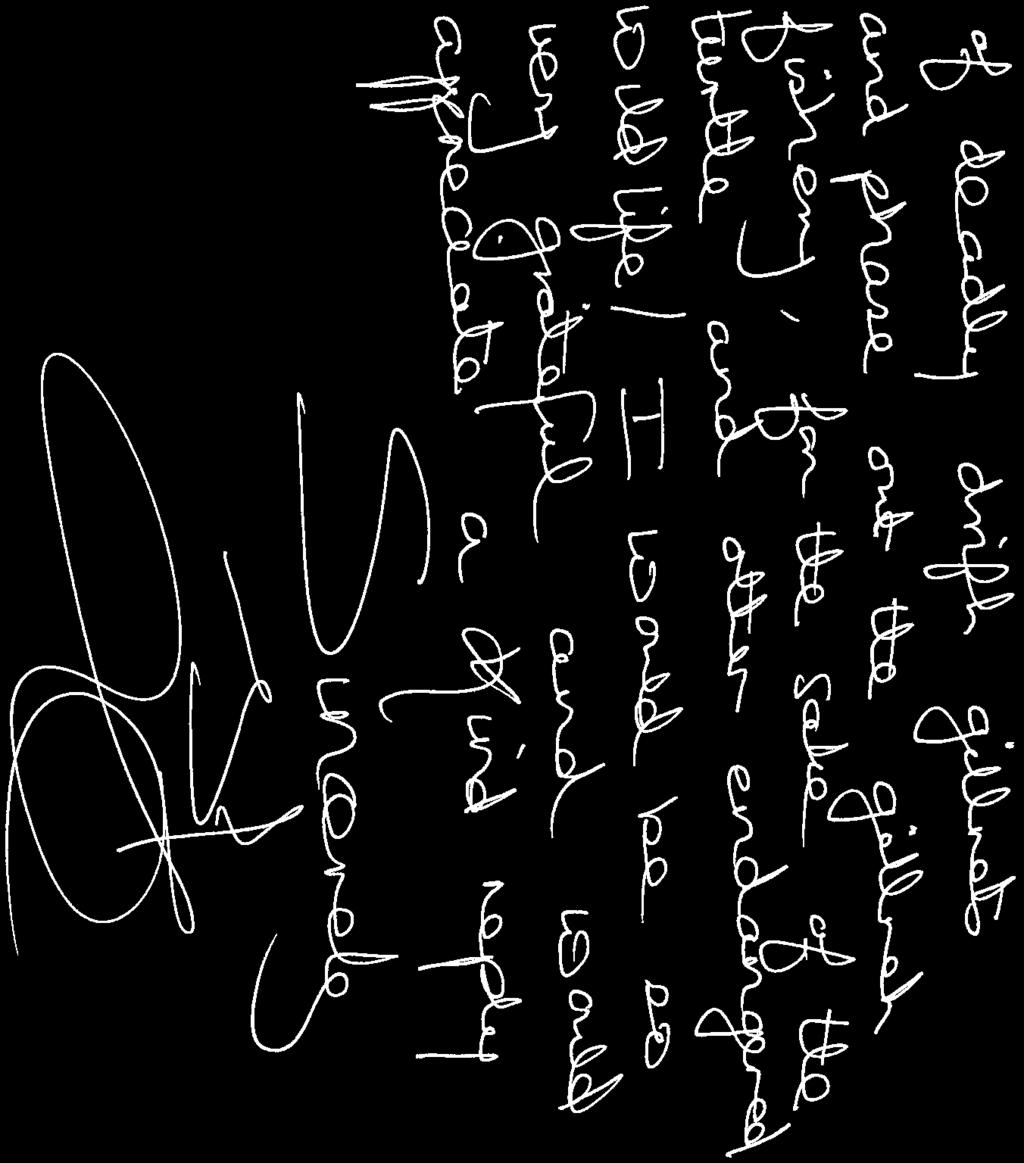 of deadly drift gillnets
and phase out the gillnet
fishery, for the sake of the
turtle and other endangered
wildlife / I would be so
very grateful and would
appreciate a kind reply
Sincerely